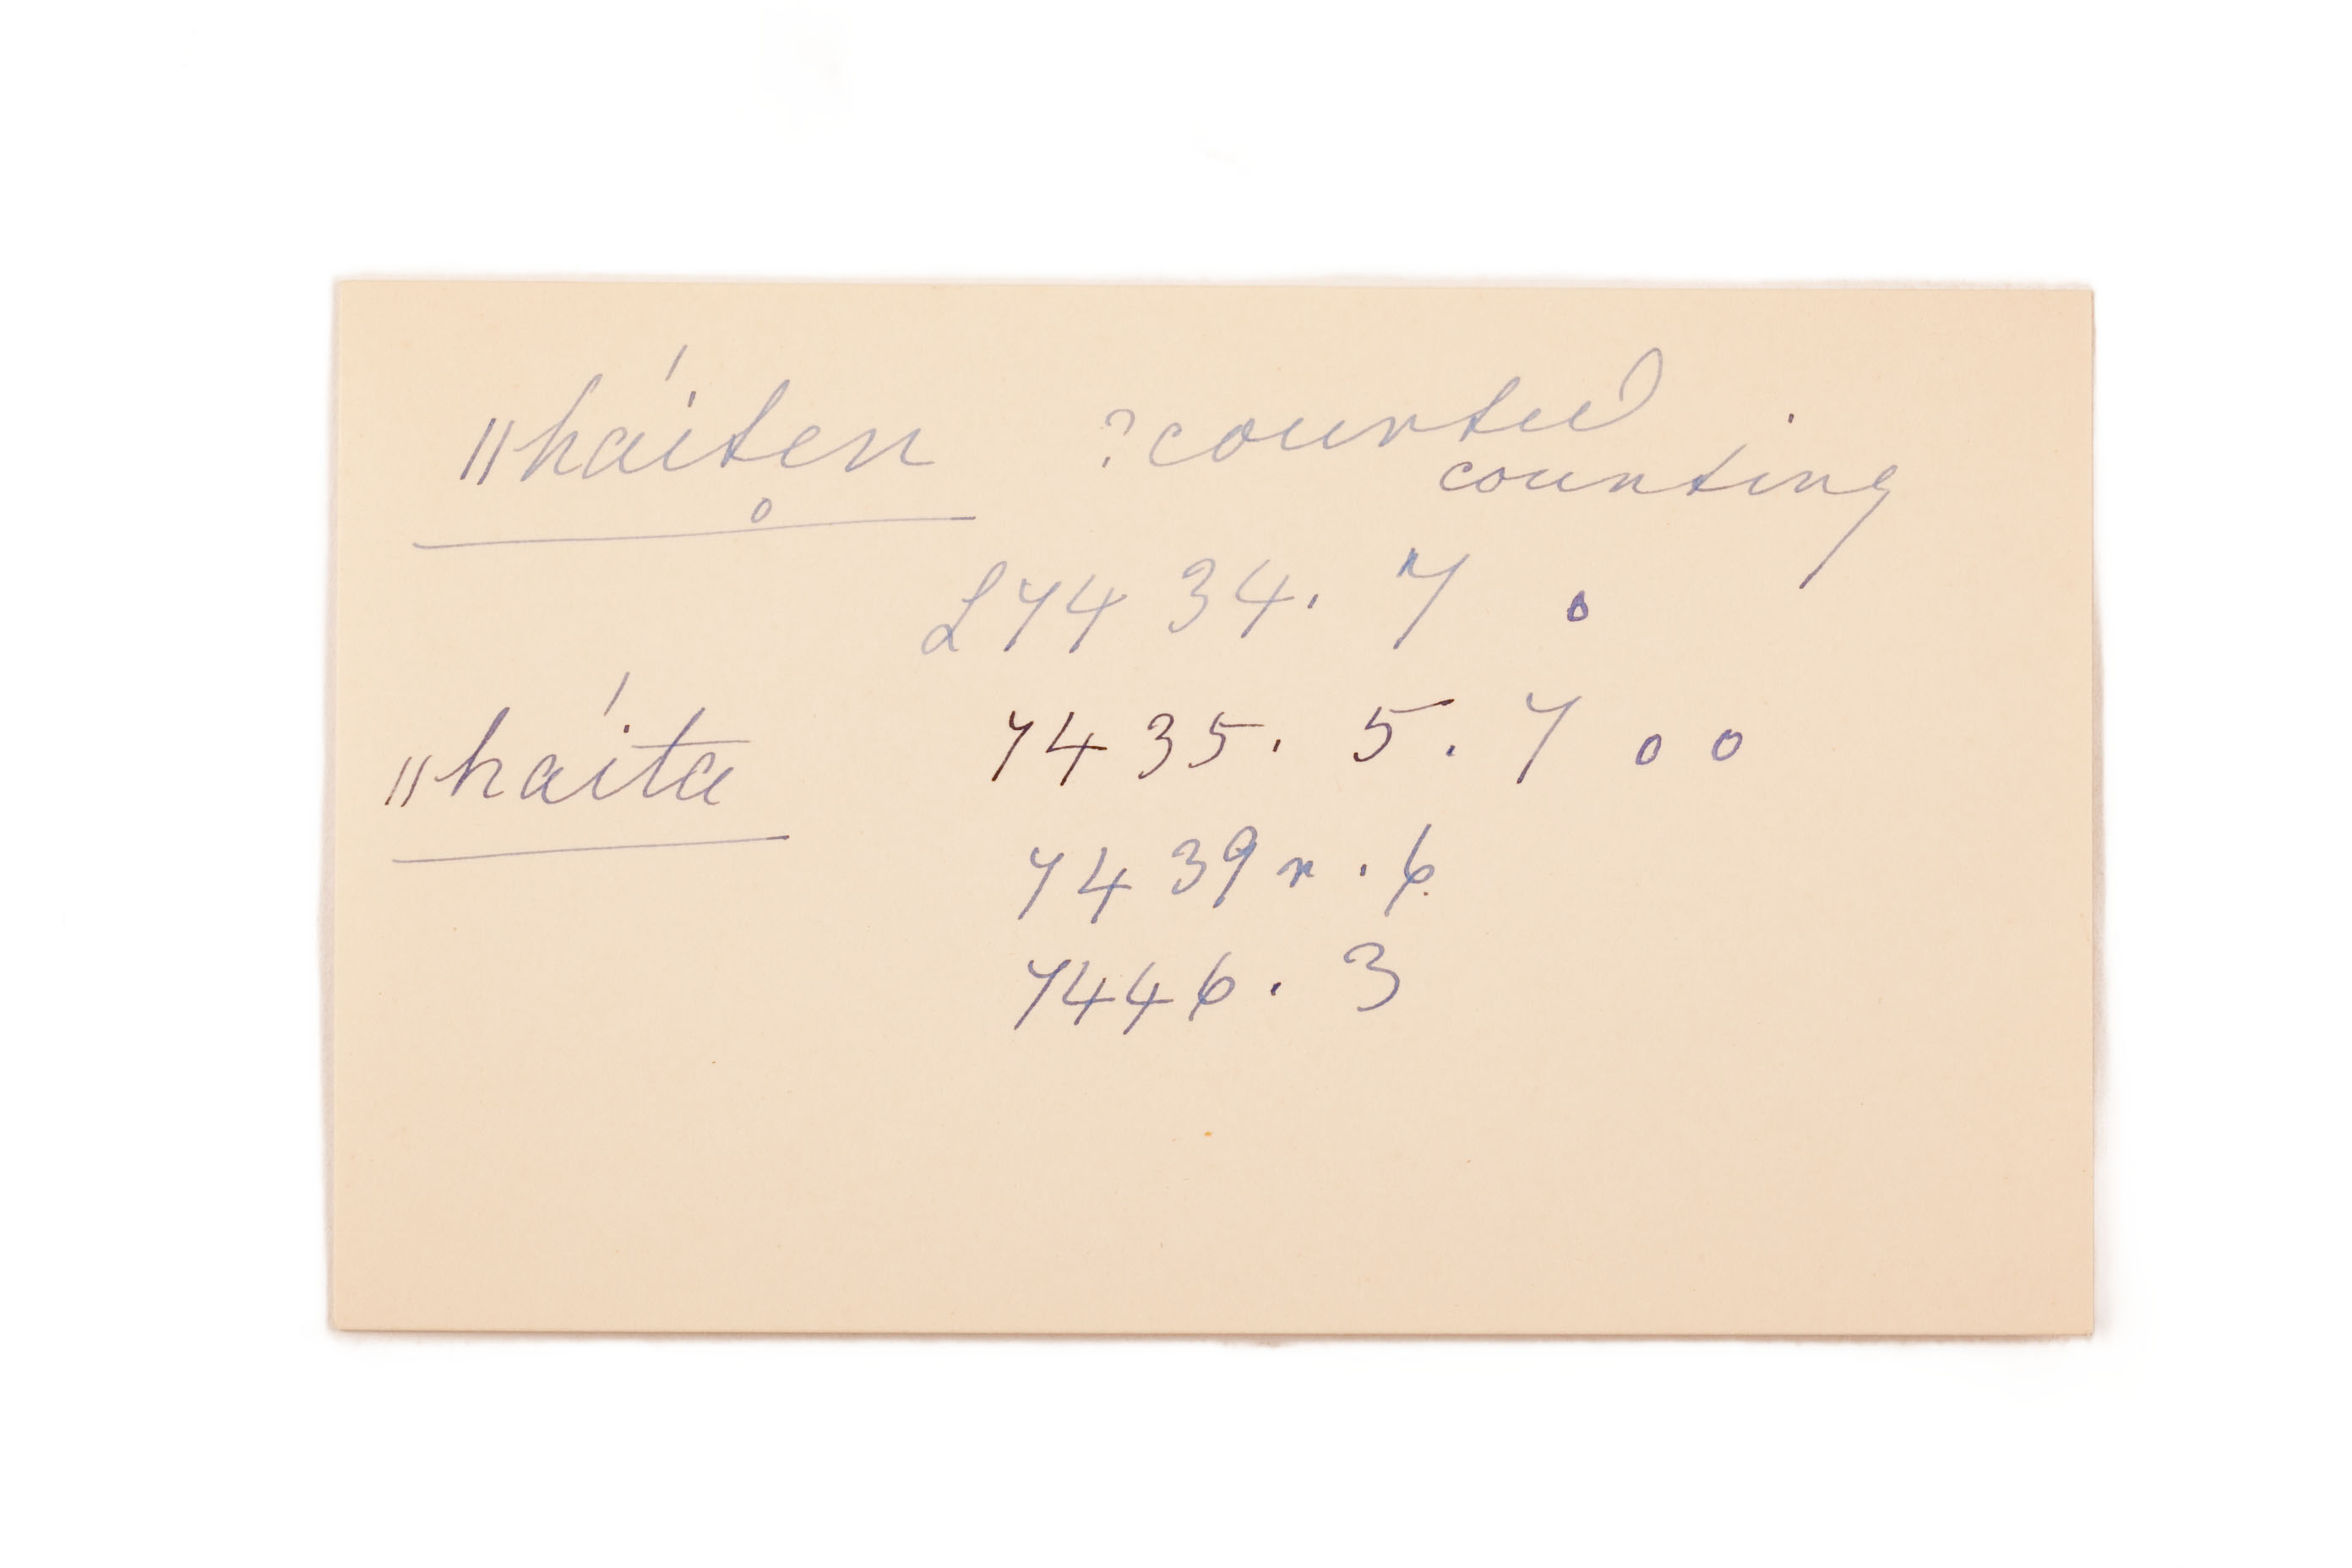 ǁháiten ? counted
counting
L7434. 7 o
ǁháita 7435. 5. 7 o o
7439r. 6
7446. 3